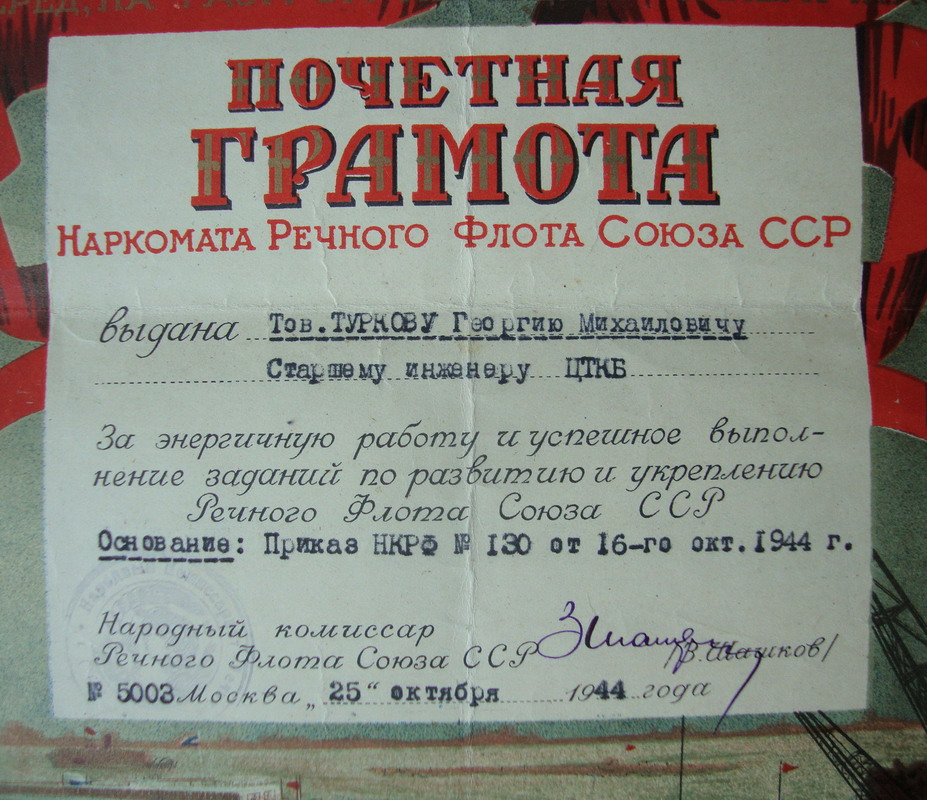 ПОЧЕТНАЯ
ГРАМОТА
НАРКОМАТА РЕЧНОГО ФЛОТА СОЮЗА ССР
выдана Тов.ТУРКОВУ Георгию Михаиловичу
Старшему инженеру ЦТКБ
За энергичную работу и успешное выпол-
нение заданий по развитию и укреплению
Речного Флота Союза ССР
Основание: Приказ НКРФ № 130 от 16-го окт.1944 г.
Народный комиссар
Речного Флота Союза ССР /З.Шашков/
№ 5003 Москва „25“ октября 1944 года